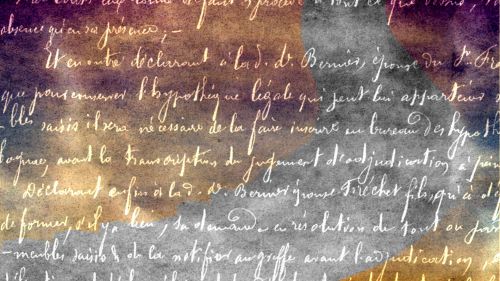 absence qu'en sa présence ; —
Et en outre déclarant à la d. de. Bernier, épouse du Sr. Fre
que pour conserver l'hypothèque légale qui peut lui appartenir s
bles saisis il sera nécessaire de la faire inscrire au bureau des hypoth
Cognac, avant la transcription du jugement d'adjudication à pein
Déclarant enfin à la d. de. Bernier épouse Frechet fils, qu'à d
de former, s'il y a lieu, sa demande en résolution de tout ou par
-meubles saisis & de la notifier au greffe avant l'adjudication, à